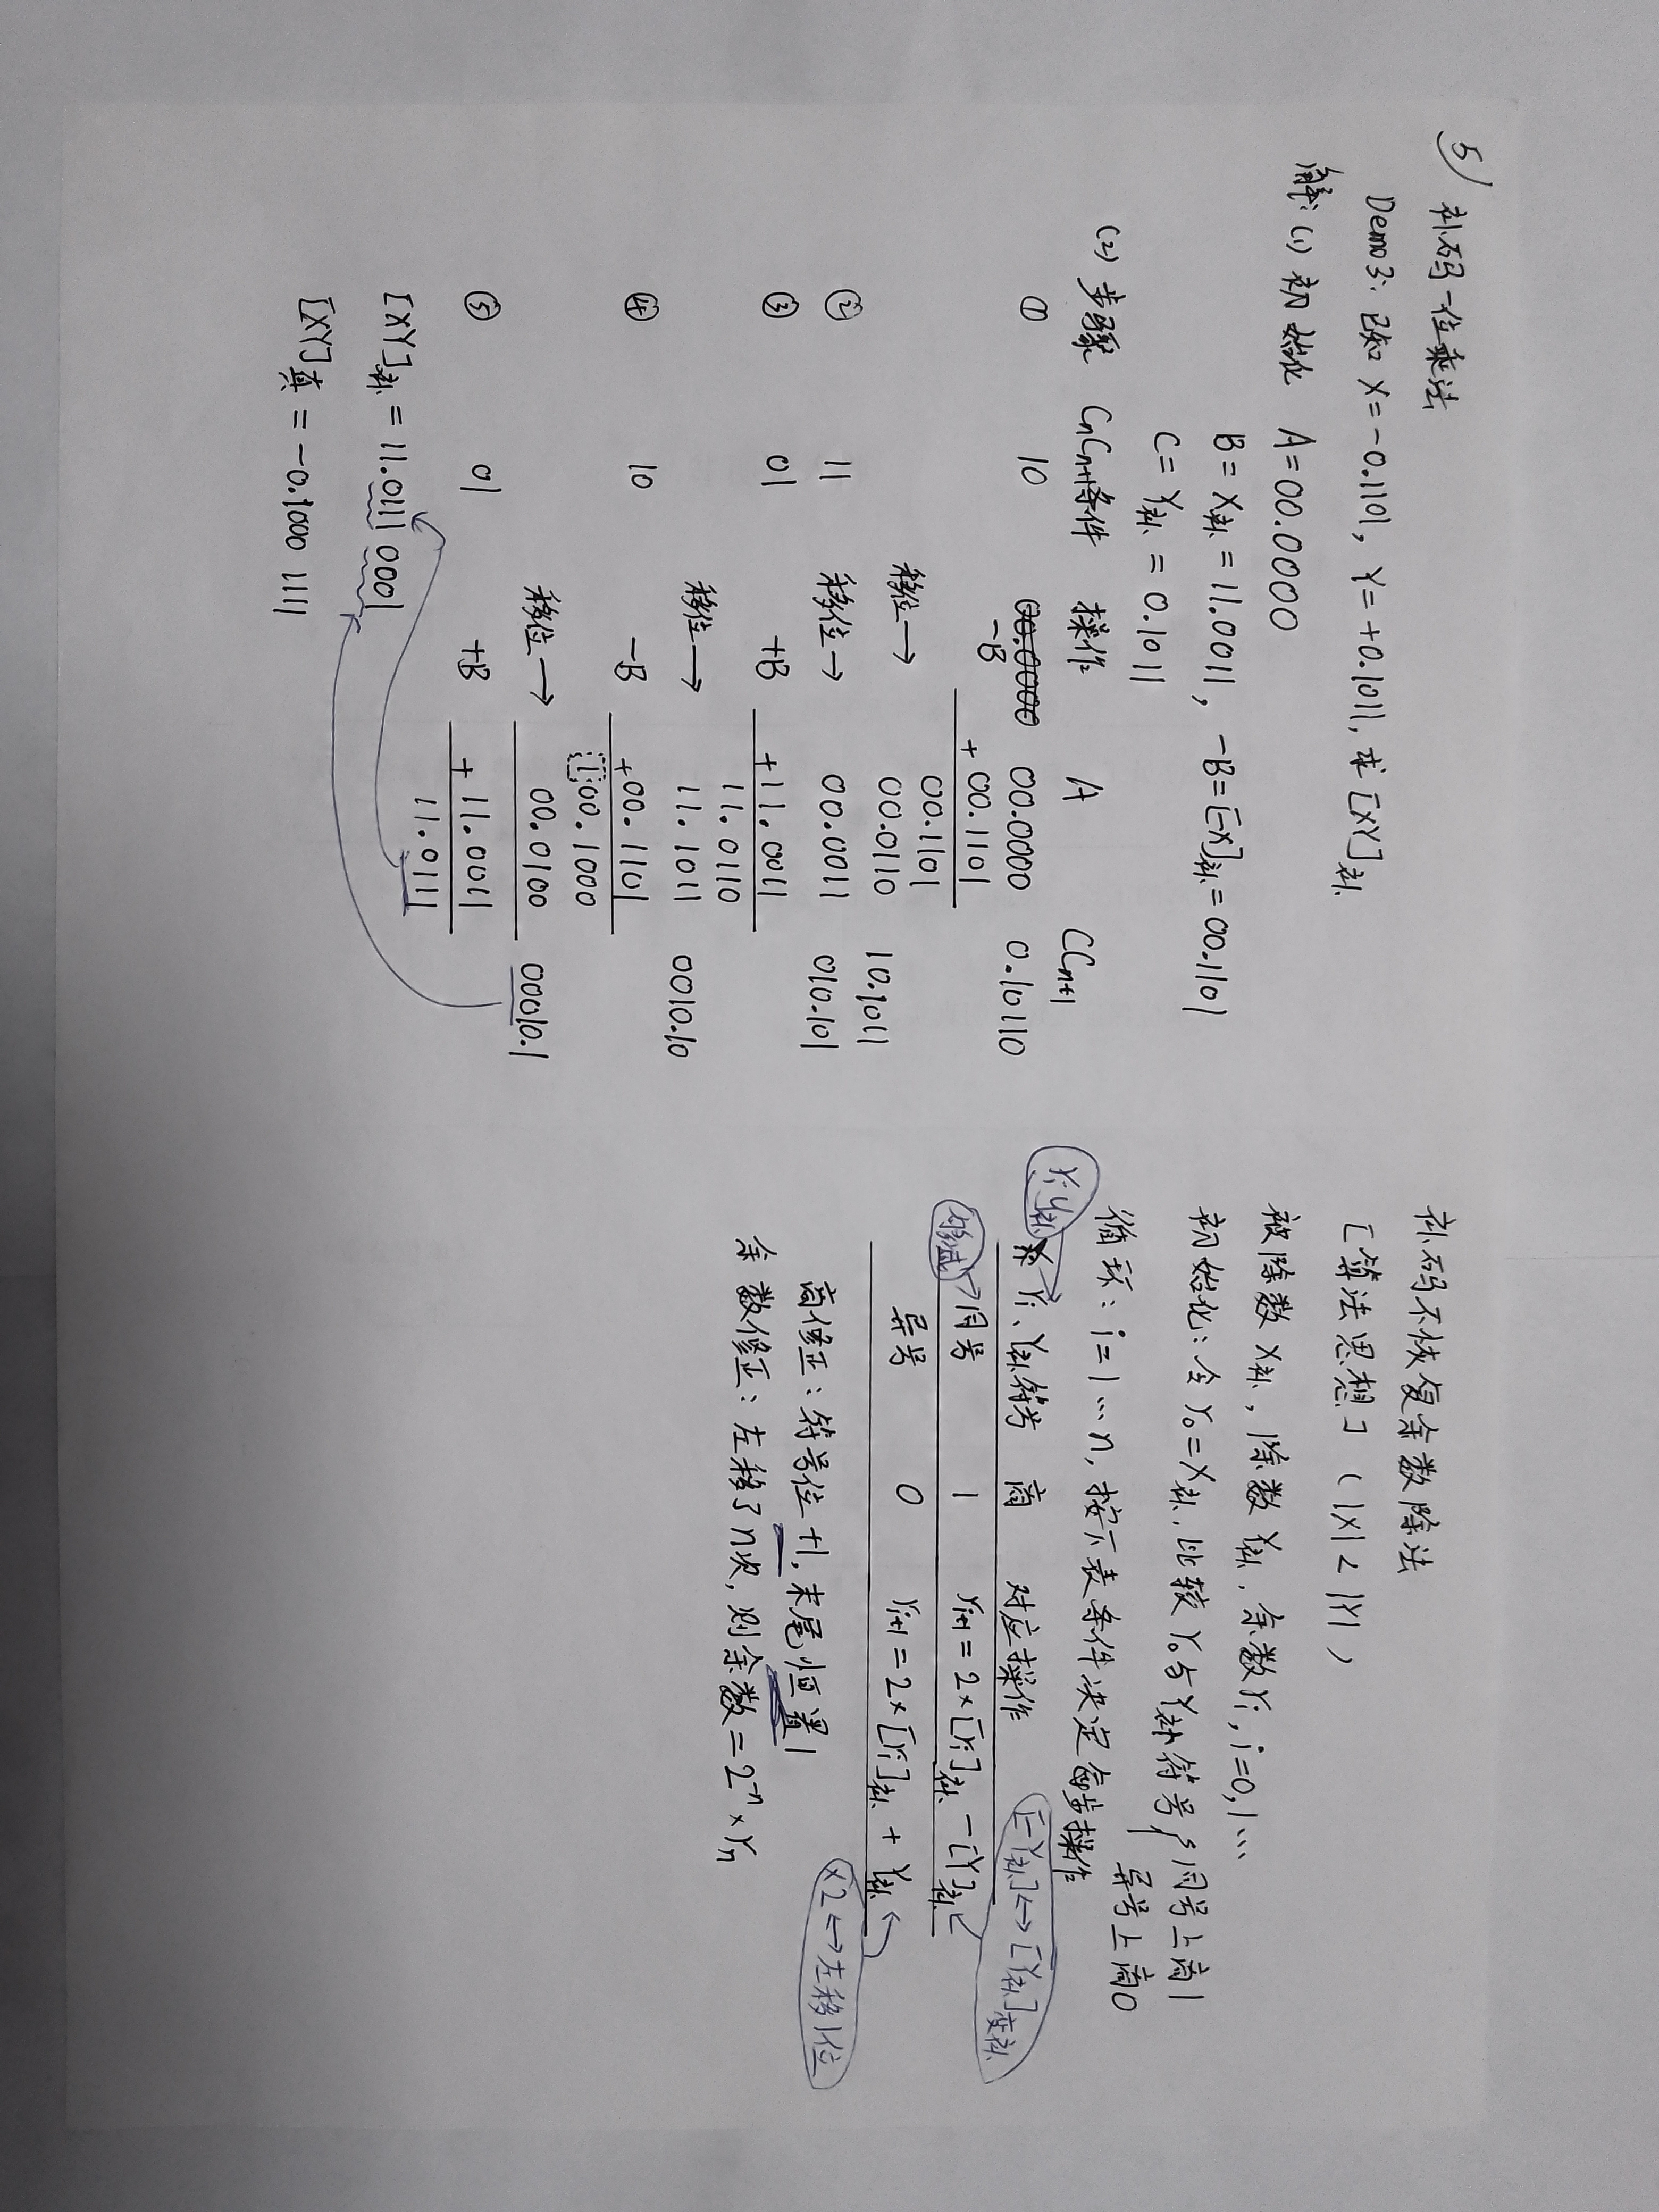 5)
补码一位乘法
Demo3: 已知 X=-0.1101, Y=+0.1011, 求 [XY]补
解: (1) 初始化 A=00.0000
B = X补 = 11.0011, -B=[-X]补=00.1101
C = Y补 = 0.1011
(2) 步骤 CnCn+1条件 操作 A CCn+1
① 10 00.0000 00.0000 0.10110
-B + 00.1101
00.1101
移位→ 00.0110 10.1011
② 11 移位→ 00.0011 010.101
③ 01 +B +11.0011
11.0110
移位→ 11.1011 0010.10
④ 10 -B +00.1101
100.1000
移位→ 00.0100 00010.1
⑤ 01 +B + 11.0011
11.0111
[XY]补 = 11.0111 0001
[XY]真 = -0.1000 1111
补码不恢复余数除法
[算法思想] (|X| < |Y|)
被除数 X补, 除数 Y补, 余数 ri, i=0,1…
初始化: 令 r0=X补, 比较 r0与Y补符号{ 同号上商1
异号上商0
循环: i=1…n, 按下表条件决定每步操作
ri y补 ri、Y补符号 商 对应操作 [-Y补]↔[Y补]变补
够减→同号 1 ri+1 = 2×[ri]补 - [Y]补
异号 0 ri+1 = 2×[ri]补 + Y补
×2↔左移1位
商修正: 符号位+1, 末尾恒置1
余数修正: 左移了n次, 则余数=2^-n×rn